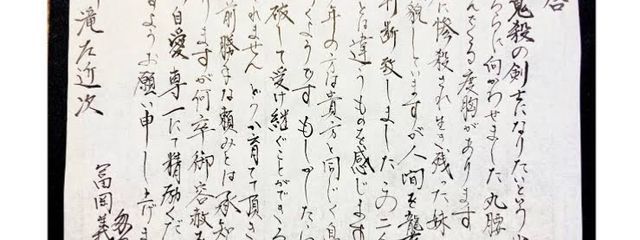 鬼殺の剣士になりたいという
ちらに向かわせました 丸腰
んでくる度胸があります
に惨殺され生き残った妹
貌していますが人間を襲
判断致しました この二人
とは違うものを感じます
年の方は貴方と同じく
くようです もしかしたら
破して受け継ぐことができる
れません どうか育てて頂き
前勝手な頼みとは承知
りますが何卒御容赦
自愛専一にて精励くだ
ますようお願い申し上げま
匆
冨岡義
滝左近次